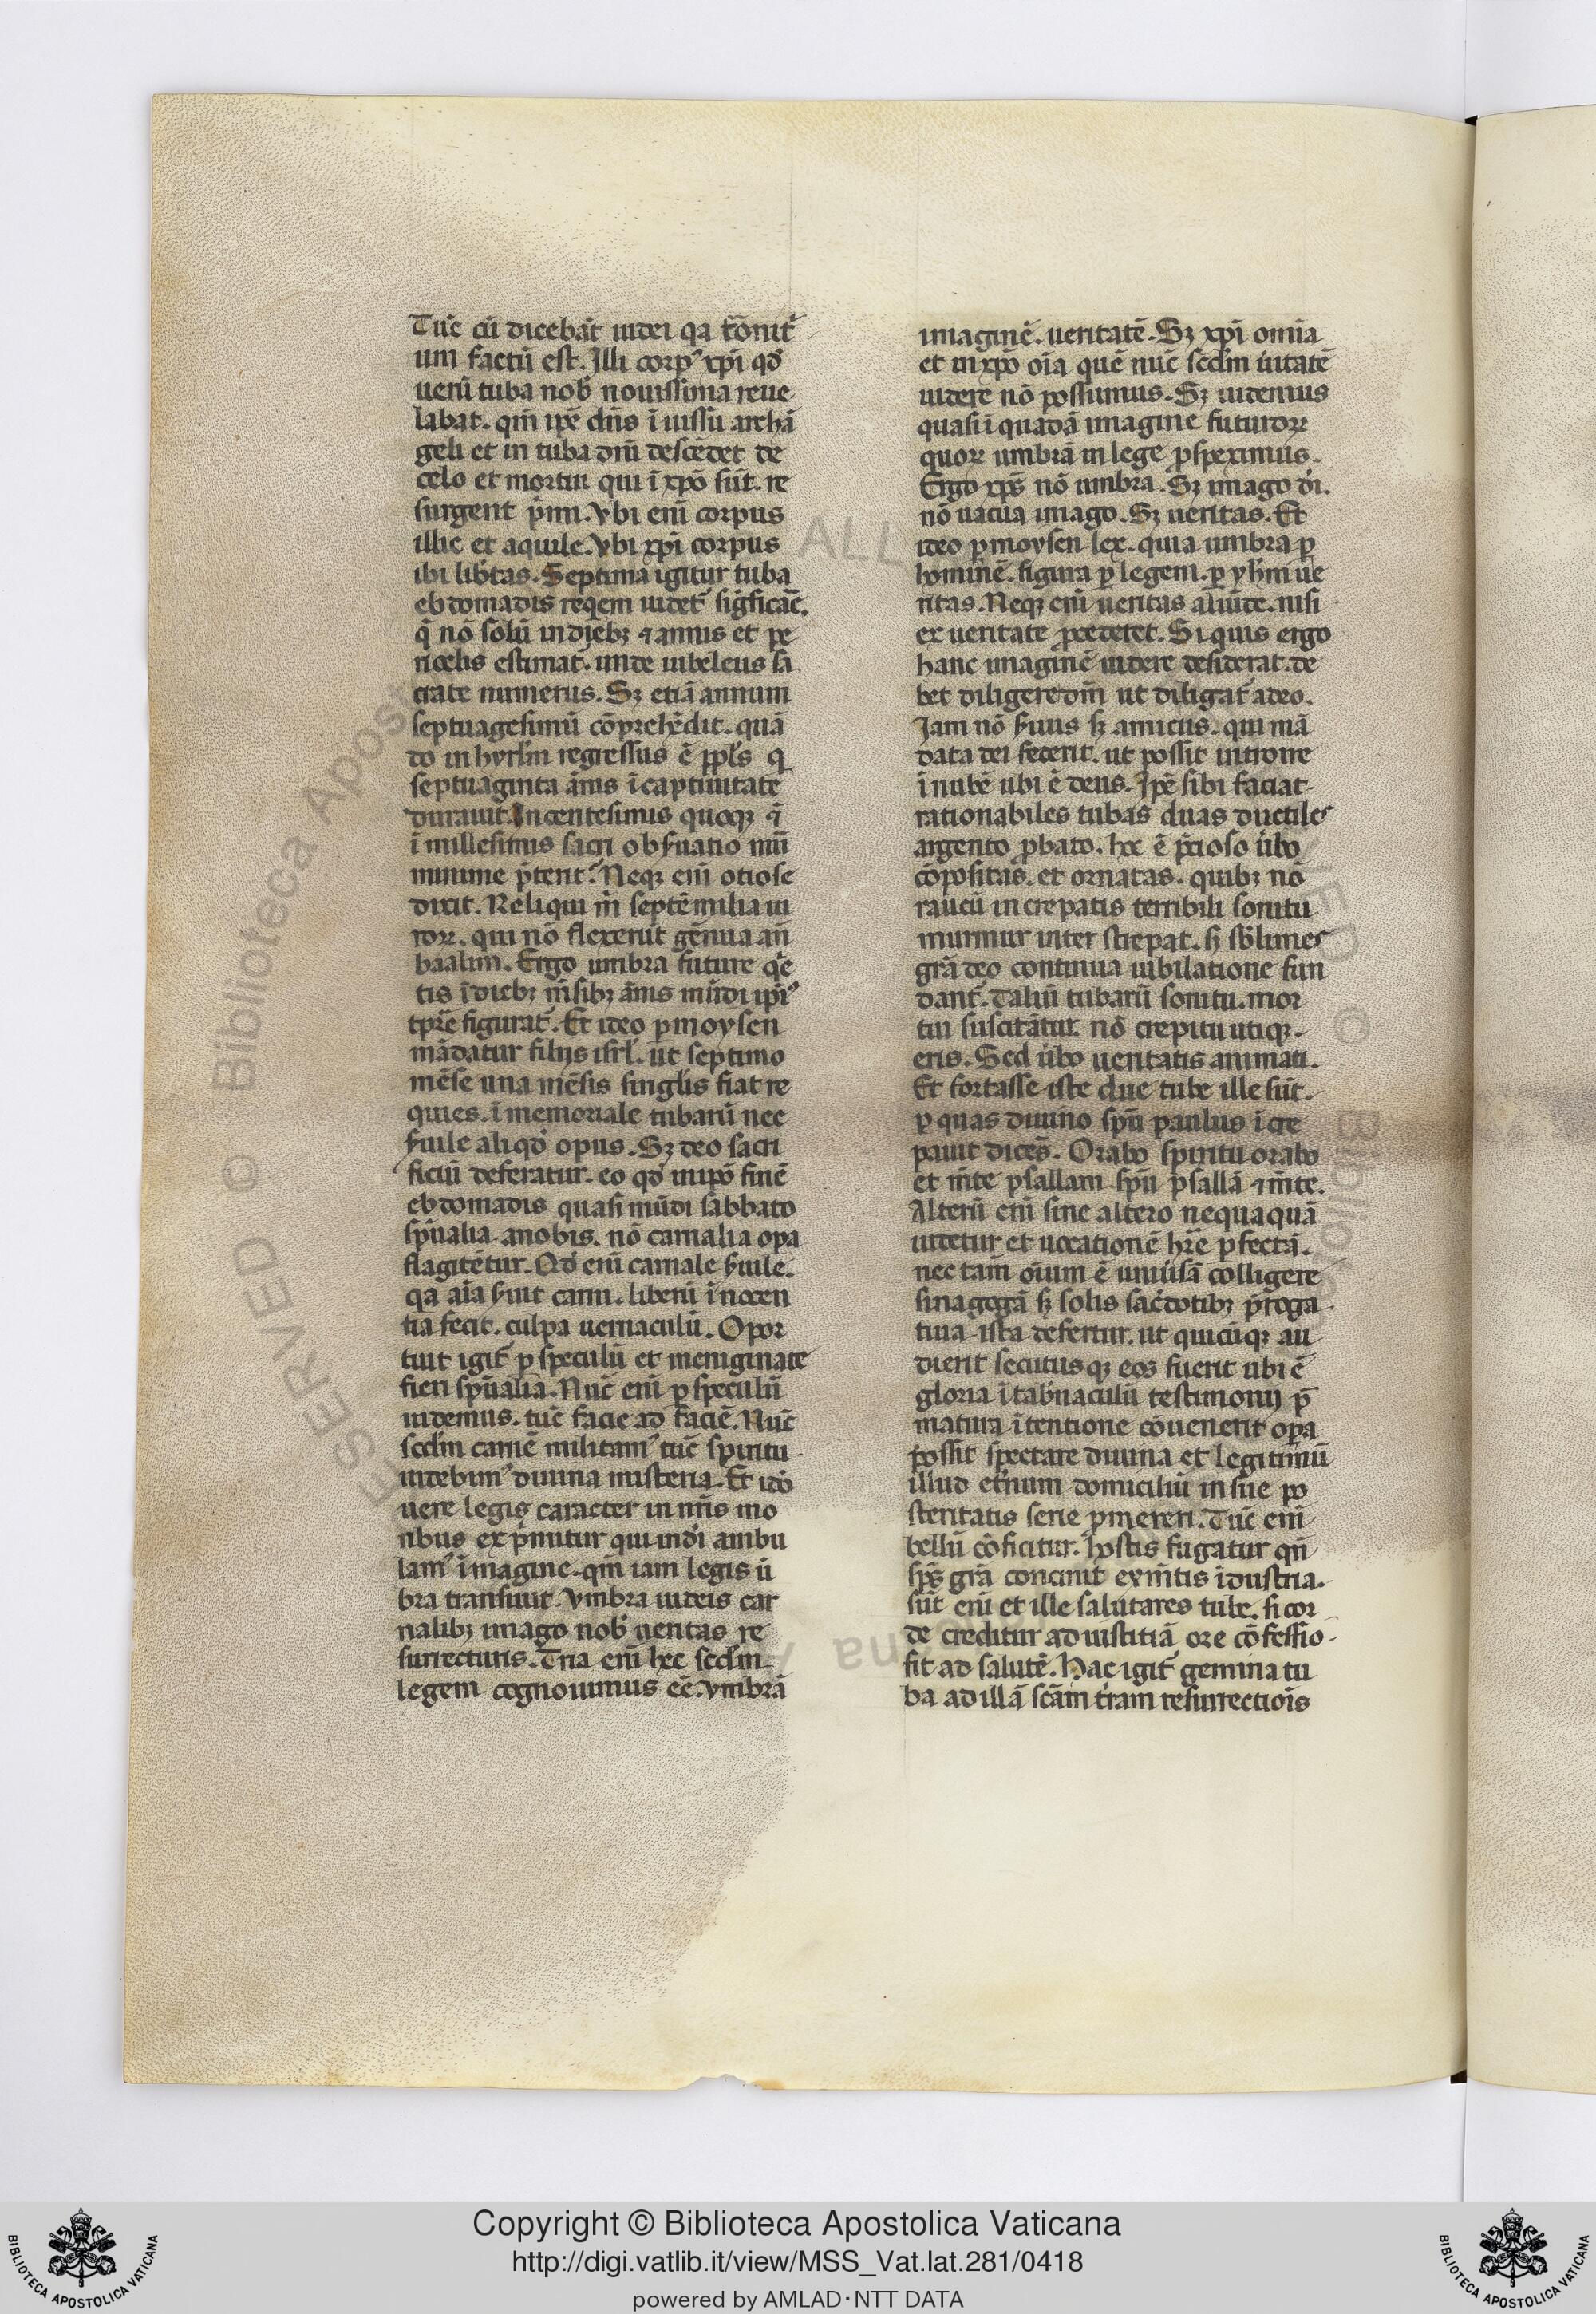 Tūc cū dicebāt iudei qa tōnitr̄
um factū est. Illi corpꝰ xp̄i qd̄
uerū tuba nob̄ nouissima reue
labat. qm̄ ip̄e dn̄s ī iussu archā
geli et in tuba dn̄i descēdet de
celo et mortui qui ī xp̄o sūt. re
surgent p̄mi. Vbi eni corpus
illic et aquile. Vbi xp̄i corpus
ibi lib̄tas. Septima igitur tuba
ebdomadis reqem uidet̄ sigficāē.
q̄ nō solū in diebꝫ ⁊ annis et pe
riodis estimat̄. unde iubeleus fi
ciate numerus. Sꝫ etiā annum
septuagesimū cōprehēdit. quā
do in hyrlm̄ regressus ē ppl̄s q
septuaginta ānis ī captiuitate
durauit. In centesimis quoqꝫ ⁊
ī millesimis sacri obs̄uatio nū
minime p̄terit̄. Neqꝫ eni otiose
dixit. Reliqui m̄ septē milia ui
roꝝ. qui nō flexerūt gēnua an̄
baalim. Ergo umbra future q̄e
tis ī diebꝫ m̄sibꝫ ānis mūdi ipiꝰ
tpr̄e figurat̄. Et ideo ꝑ moysen
mādatur filijs isrl̄. ut septimo
mēse una mēsis singl̄is fiat re
quies. ī memoriale tubarū nec
s̄uile aliqd̄ opus. Sꝫ deo sacri
ficiū deferatur. eo qd̄ in ip̄o finē
ebdomadis quasi mūdi sabbato
sp̄ualia a nobis. nō carnalia opa
flagitētur. Qd̄ eni carnale s̄uile.
qa aīa s̄uit carni. liberū īnocen
tia fecit. culpa uernaculū. Opor
tuit igit̄ ꝑ speculū et in enigmate
fieri sp̄ualia. Nūc eni ꝑ speculū
uidemus. tūc facie ad faciē. Nūc
scdm̄ carnē militamꝰ tūc spiritu
uidebimꝰ diuina misteria. Et idō
uere legis caracter in nr̄is mo
ribus exp̄mitur qui in dī ambu
lamꝰ īmagine. qm̄ iam legis ū
bra transiuit. Vmbra iudeis car
nalibꝫ imago nob̄ ueritas re
surrecturis. Tria eni hec scdm̄
legem cognouimus eē. Vmbrā
imaginē. ueritatē. Sꝫ xp̄i omia
et in xp̄o oīa quē nūc scdm̄ ūitatē
uidere nō possumus. Sꝫ uidemus
quasi ī quadā imagine futuroꝝ
quoꝝ umbrā in lege ꝓspeximus.
Ergo xp̄s nō umbra. Sꝫ imago dī.
nō uacua imago. Sꝫ ueritas. Et
ideo ꝑ moysen lex. quia umbra ꝑ
hominē. figura ꝑ legem. ꝑ yhm̄ ue
ritas. Neqꝫ eni ueritas aliūde. nisi
ex ueritate ꝓcederet. Si quis ergo
hanc imaginē uidere desiderat. de
bet diligere dm̄ ut diligat̄ a deo.
Iam nō s̄uus sꝫ amicus. qui mā
data dei fecerit. ut possit introire
ī nubē ubi ē deus. Ip̄e sibi faciat
rationabiles tubas duas ductiles
argento ꝓbato. hoc ē p̄cioso ūbo
cōpositas. et ornatas. quibꝫ nō
raucū increpatis terribili sonitu
murmur inter strepat. sꝫ sb̄limes
grā deo continua iubilatione fun
dant̄. Taliū tubarū sonitu. mor
tui suscitātur. nō crepitu utiqꝫ.
eris. Sed ūbo ueritatis animati.
Et fortasse iste due tube ille sūt.
ꝑ quas diuino sp̄u paulus īcre
pauit dicēs. Orabo spiritu orabo
et m̄te psallam sp̄u psallā ⁊ m̄te.
Alterū eni sine altero nequaquā
uidetur et uocationē hr̄e ꝑfectā.
nec tam̄ oīum ē uniūsā colligere
sinagogā sꝫ solis sac̄dotibꝫ p̄roga
tiua ista defertur. ut quicūqꝫ au
dierit secutusqꝫ eos fuerit ubi ē
gloria ī tab̄naculū testimonij p̄
matura ītentione cōuenerit opa
possit spectare diuina et legitimū
illud et̄num domiciliū in sue po
steritatis serie ꝓmereri. Tūc eni
bellū cōficitur. hostis fugatur qn̄
sp̄s grā concinit ex m̄tis īdustria.
sūt eni et ille salutares tube. si cor
de creditur ad iustitiā ore cōfessio
fit ad salutē. Hac igit̄ gemina tu
ba ad illā scām t̄ram resurrectiōis
Copyright © Biblioteca Apostolica Vaticana
http://digi.vatlib.it/view/MSS_Vat.lat.281/0418
powered by AMLAD·NTT DATA